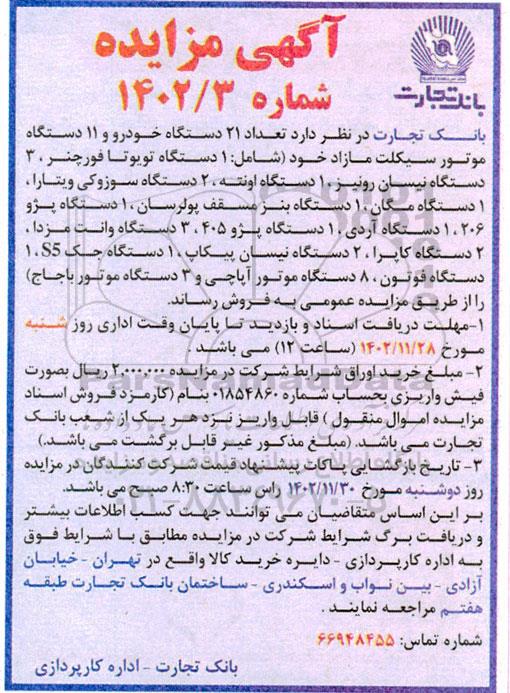 آگهی مزایده
شماره ۱۴۰۲/۳
بانک تجارت
بانک تجارت در نظر دارد تعداد ۲۱ دستگاه خودرو و ۱۱ دستگاه
موتور سیکلت مازاد خود (شامل: ۱ دستگاه تویوتا فورچنر ، ۳
دستگاه نیسان رونیز، ۱ دستگاه اونته ، ۲ دستگاه سوزوکی ویتارا ،
۱ دستگاه مگان، ۱ دستگاه بنز مسقف پولرسان ، ۱ دستگاه پژو
۲۰۶ ، ۱ دستگاه آردی، ۱ دستگاه پژو ۴۰۵ ، ۳ دستگاه وانت مزدا ،
۲ دستگاه کاپرا ، ۲ دستگاه نیسان پیکاپ ، ۱ دستگاه جک S5 ، ۱
دستگاه فوتون ، ۸ دستگاه موتور آپاچی و ۳ دستگاه موتور باجاج)
را از طریق مزایده عمومی به فروش رساند.
۱-مهلت دریافت اسناد و بازدید تا پایان وقت اداری روز شنبه
مورخ ۱۴۰۲/۱۱/۲۸ (ساعت ۱۲) می باشد .
۲- مبلغ خرید اوراق شرایط شرکت در مزایده ۲,۰۰۰,۰۰۰ ریال بصورت
فیش واریزی بحساب شماره ۰۱۸۵۴۸۶۰ بنام (کارمزد فروش اسناد
مزایده اموال منقول ) قابل واریز نزد هر یک از شعب بانک
تجارت می باشد. (مبلغ مذکور غیر قابل برگشت می باشد.)
۳- تاریخ بازگشایی پاکات پیشنهاد قیمت شرکت کنندگان در مزایده
روز دوشنبه مورخ ۱۴۰۲/۱۱/۳۰ راس ساعت ۸:۳۰ صبح می باشد.
بر این اساس متقاضیان می توانند جهت کسب اطلاعات بیشتر
و دریافت برگ شرایط شرکت در مزایده مطابق با شرایط فوق
به اداره کارپردازی - دایره خرید کالا واقع در تهران - خیابان
آزادی - بین نواب و اسکندری - ساختمان بانک تجارت طبقه
هفتم مراجعه نمایند .
شماره تماس: ۶۶۹۴۸۴۵۵
بانک تجارت - اداره کارپردازی
ParsNamadData